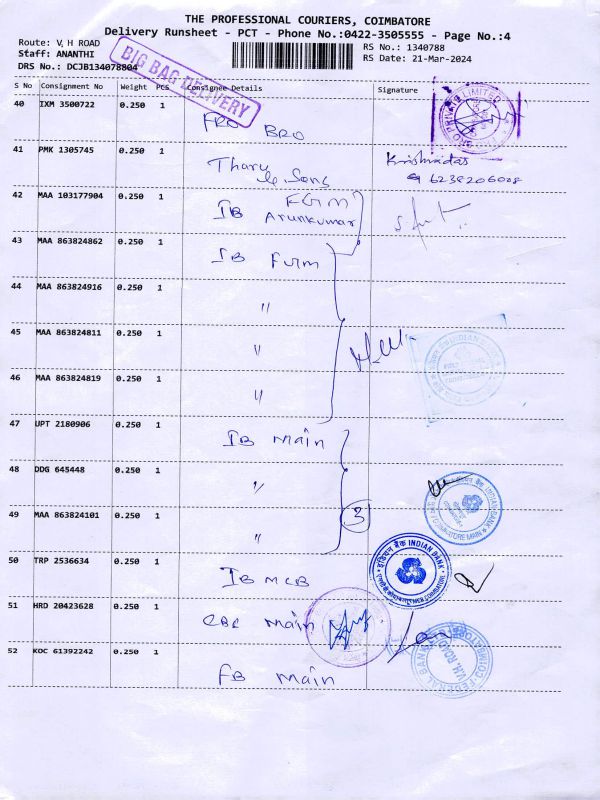 THE PROFESSIONAL COURIERS, COIMBATORE
Delivery Runsheet - PCT - Phone No.:0422-3505555 - Page No.:4
Route: V, H ROAD
Staff: ANANTHI
DRS No.: DCJB134078804
RS No.: 1340788
RS Date: 21-Mar-2024
BIG BAG DELIVERY
S No Consignment No Weight PCS Consignee Details Signature
40 IXM 3500722 0.250 1
BRO
PRIVATE LIMITED
41 PMK 1305745 0.250 1
Sons
6238206008
42 MAA 103177904 0.250 1
IB Arunkumar
43 MAA 863824862 0.250 1
IB Furm
44 MAA 863824916 0.250 1
"
45 MAA 863824811 0.250 1
"
INDIAN BANK
46 MAA 863824819 0.250 1
"
47 UPT 2180906 0.250 1
IB Main
48 DDG 645448 0.250 1
"
INDIAN BANK
COIMBATORE MAIN
49 MAA 863824101 0.250 1
"
3
50 TRP 2536634 0.250 1
IB MCB
इंडियन बैंक INDIAN BANK
51 HRD 20423628 0.250 1
Main
52 KOC 61392242 0.250 1
FB Main
FEDERAL BANK
V.H. ROAD
COIMBATORE